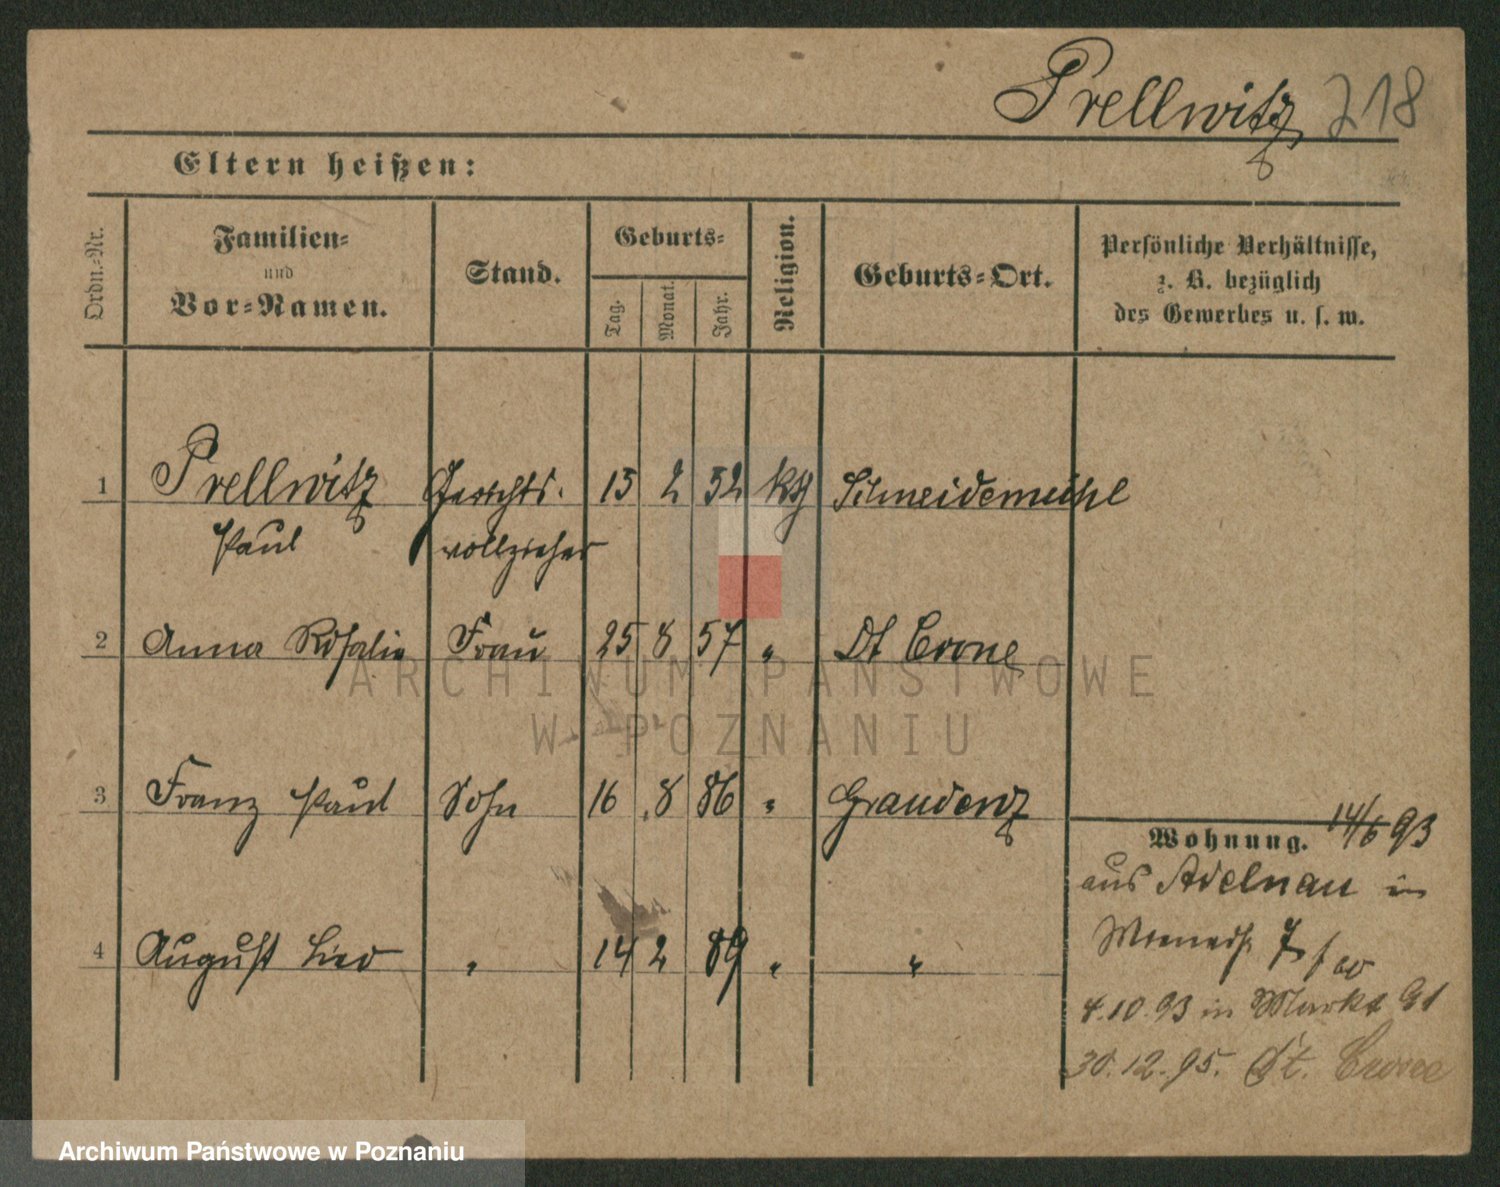 Prellwitz 218
Eltern heißen:
Ordn.-Nr.
Familien-
und
Vor-Namen.
Stand.
Geburts-
Tag.
Monat.
Jahr.
Religion.
Geburts-Ort.
Persönliche Verhältnisse,
z. B. bezüglich
des Gewerbes u. s. w.
1 Prellwitz Gerichts- 2 52 kth Schneidemühl
Paul vollzieher
2 Anna Rosalie Frau 25 8 57 " Dt Crone
3 Franz Paul Sohn 16 8 86 " Graudenz
4 August " 14 2 89 " "
Wohnung. 14/6 93
aus Adelnau in
7
4.10.93 in Markt 91
30.12.95. Dt. Crone
ARCHIWUM PAŃSTWOWE
W POZNANIU
Archiwum Państwowe w Poznaniu